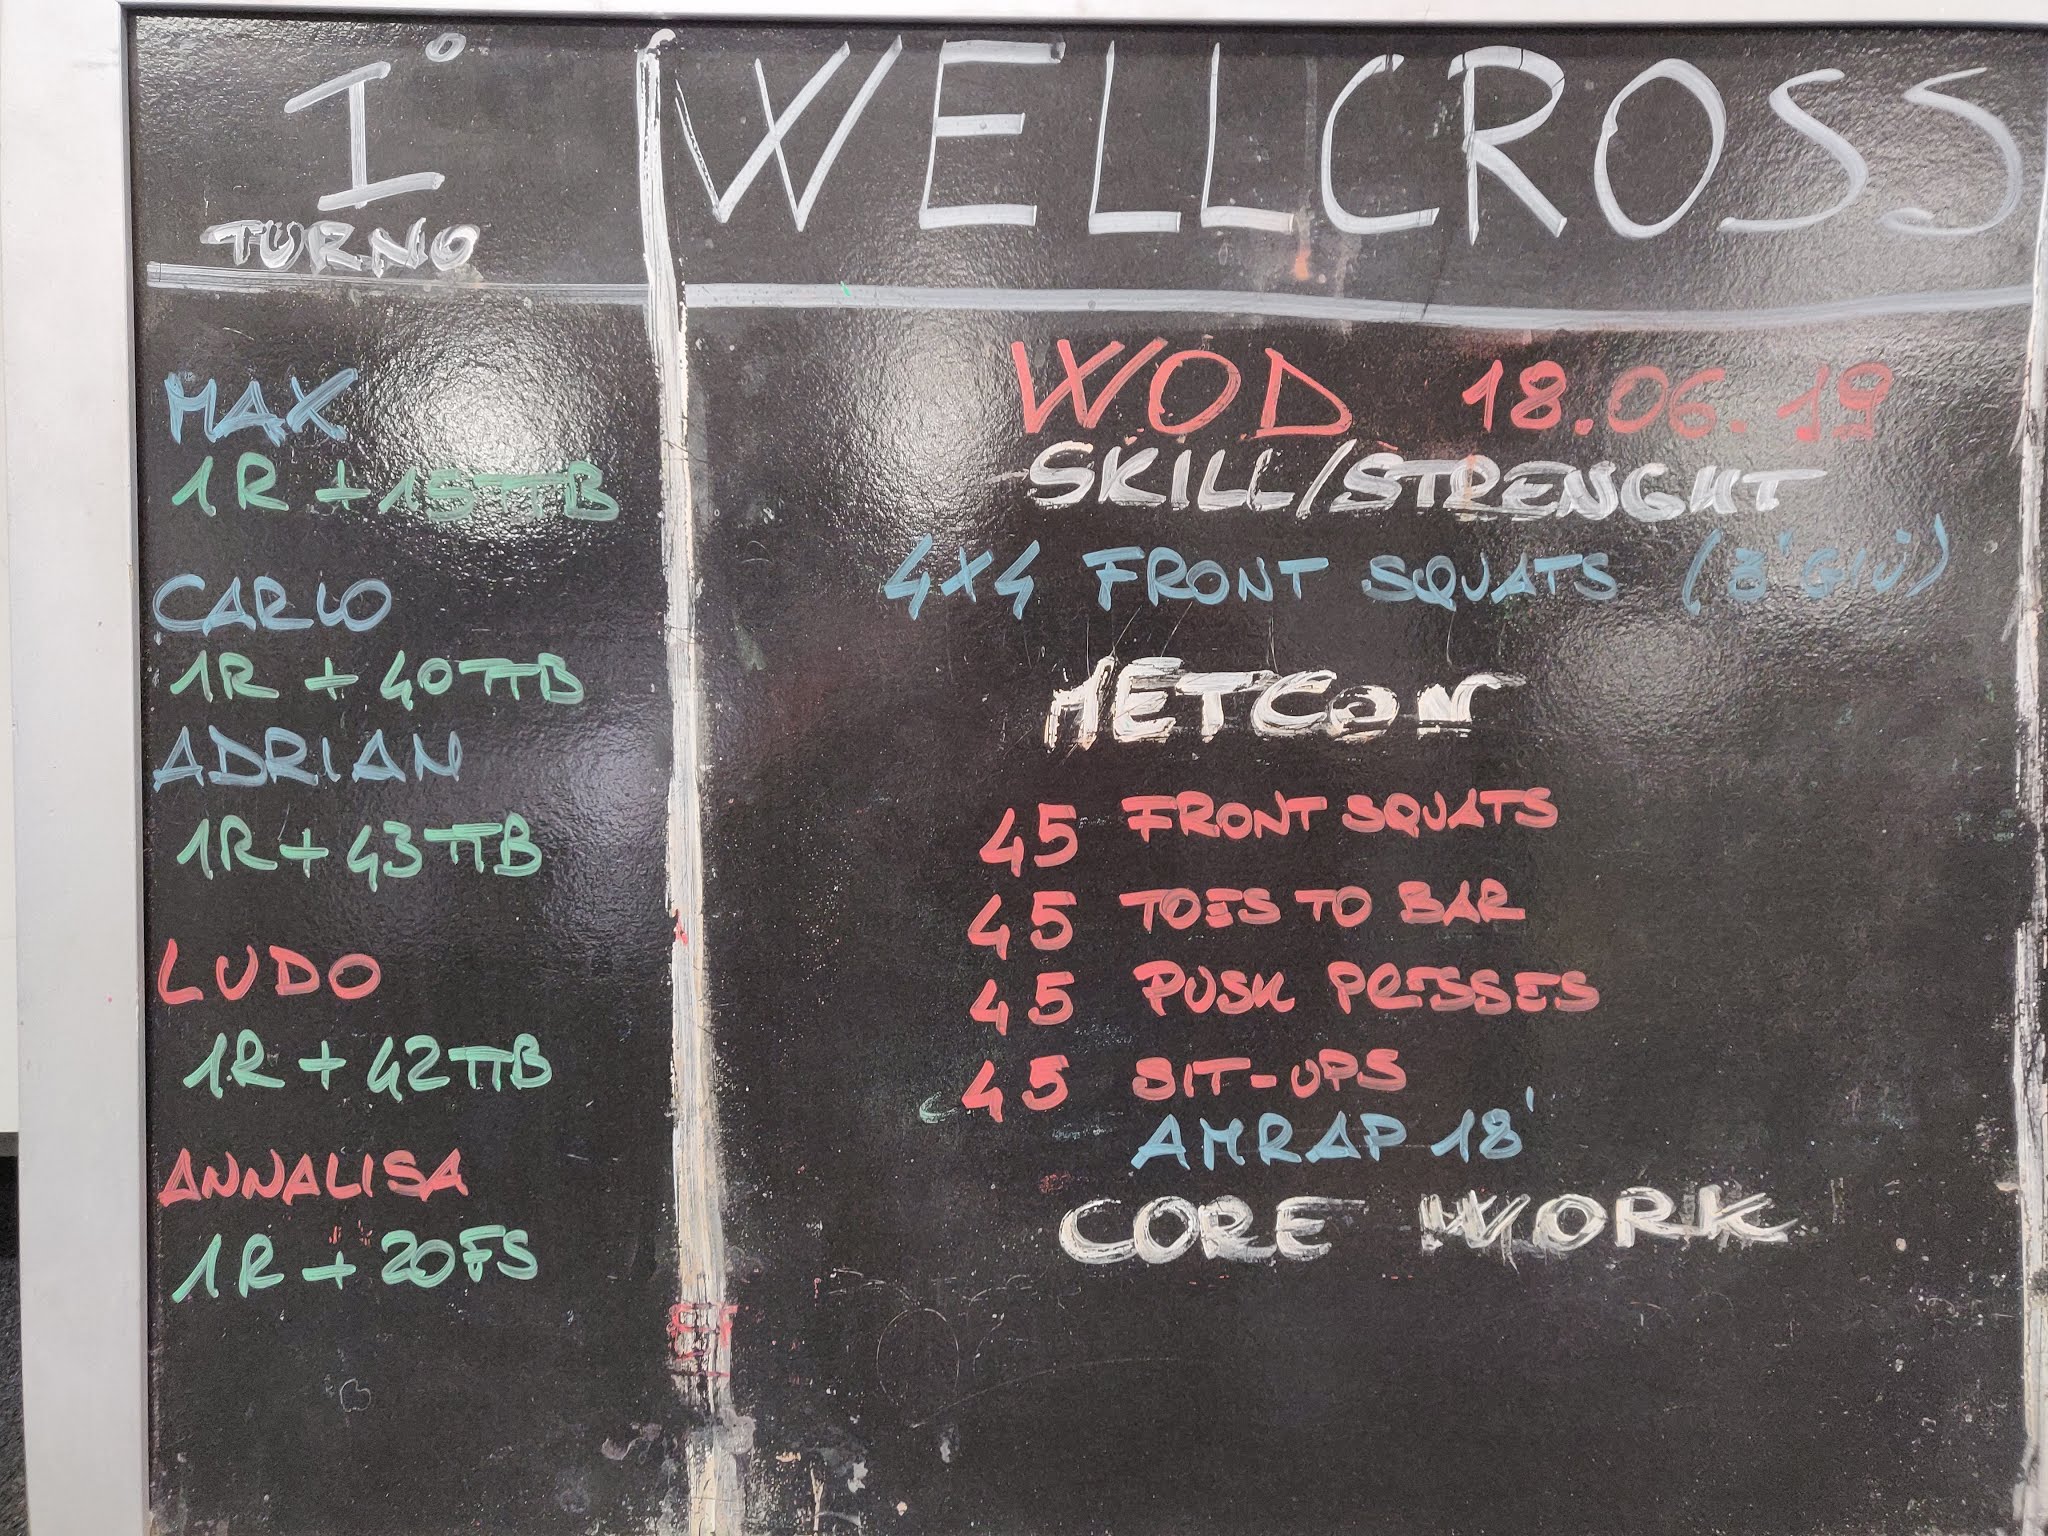 I°
TURNO
MAX
1R + 15TTB
CARLO
1R + 40TTB
ADRIAN
1R + 43TTB
LUDO
1R + 42TTB
ANNALISA
1R + 20FS
WELLCROSS
WOD 18.06.19
SKILL/STRENGHT
4X4 FRONT SQUATS (3' GIÙ)
METCON
45 FRONT SQUATS
45 TOES TO BAR
45 PUSH PRESSES
45 SIT-UPS
AMRAP 18'
CORE WORK